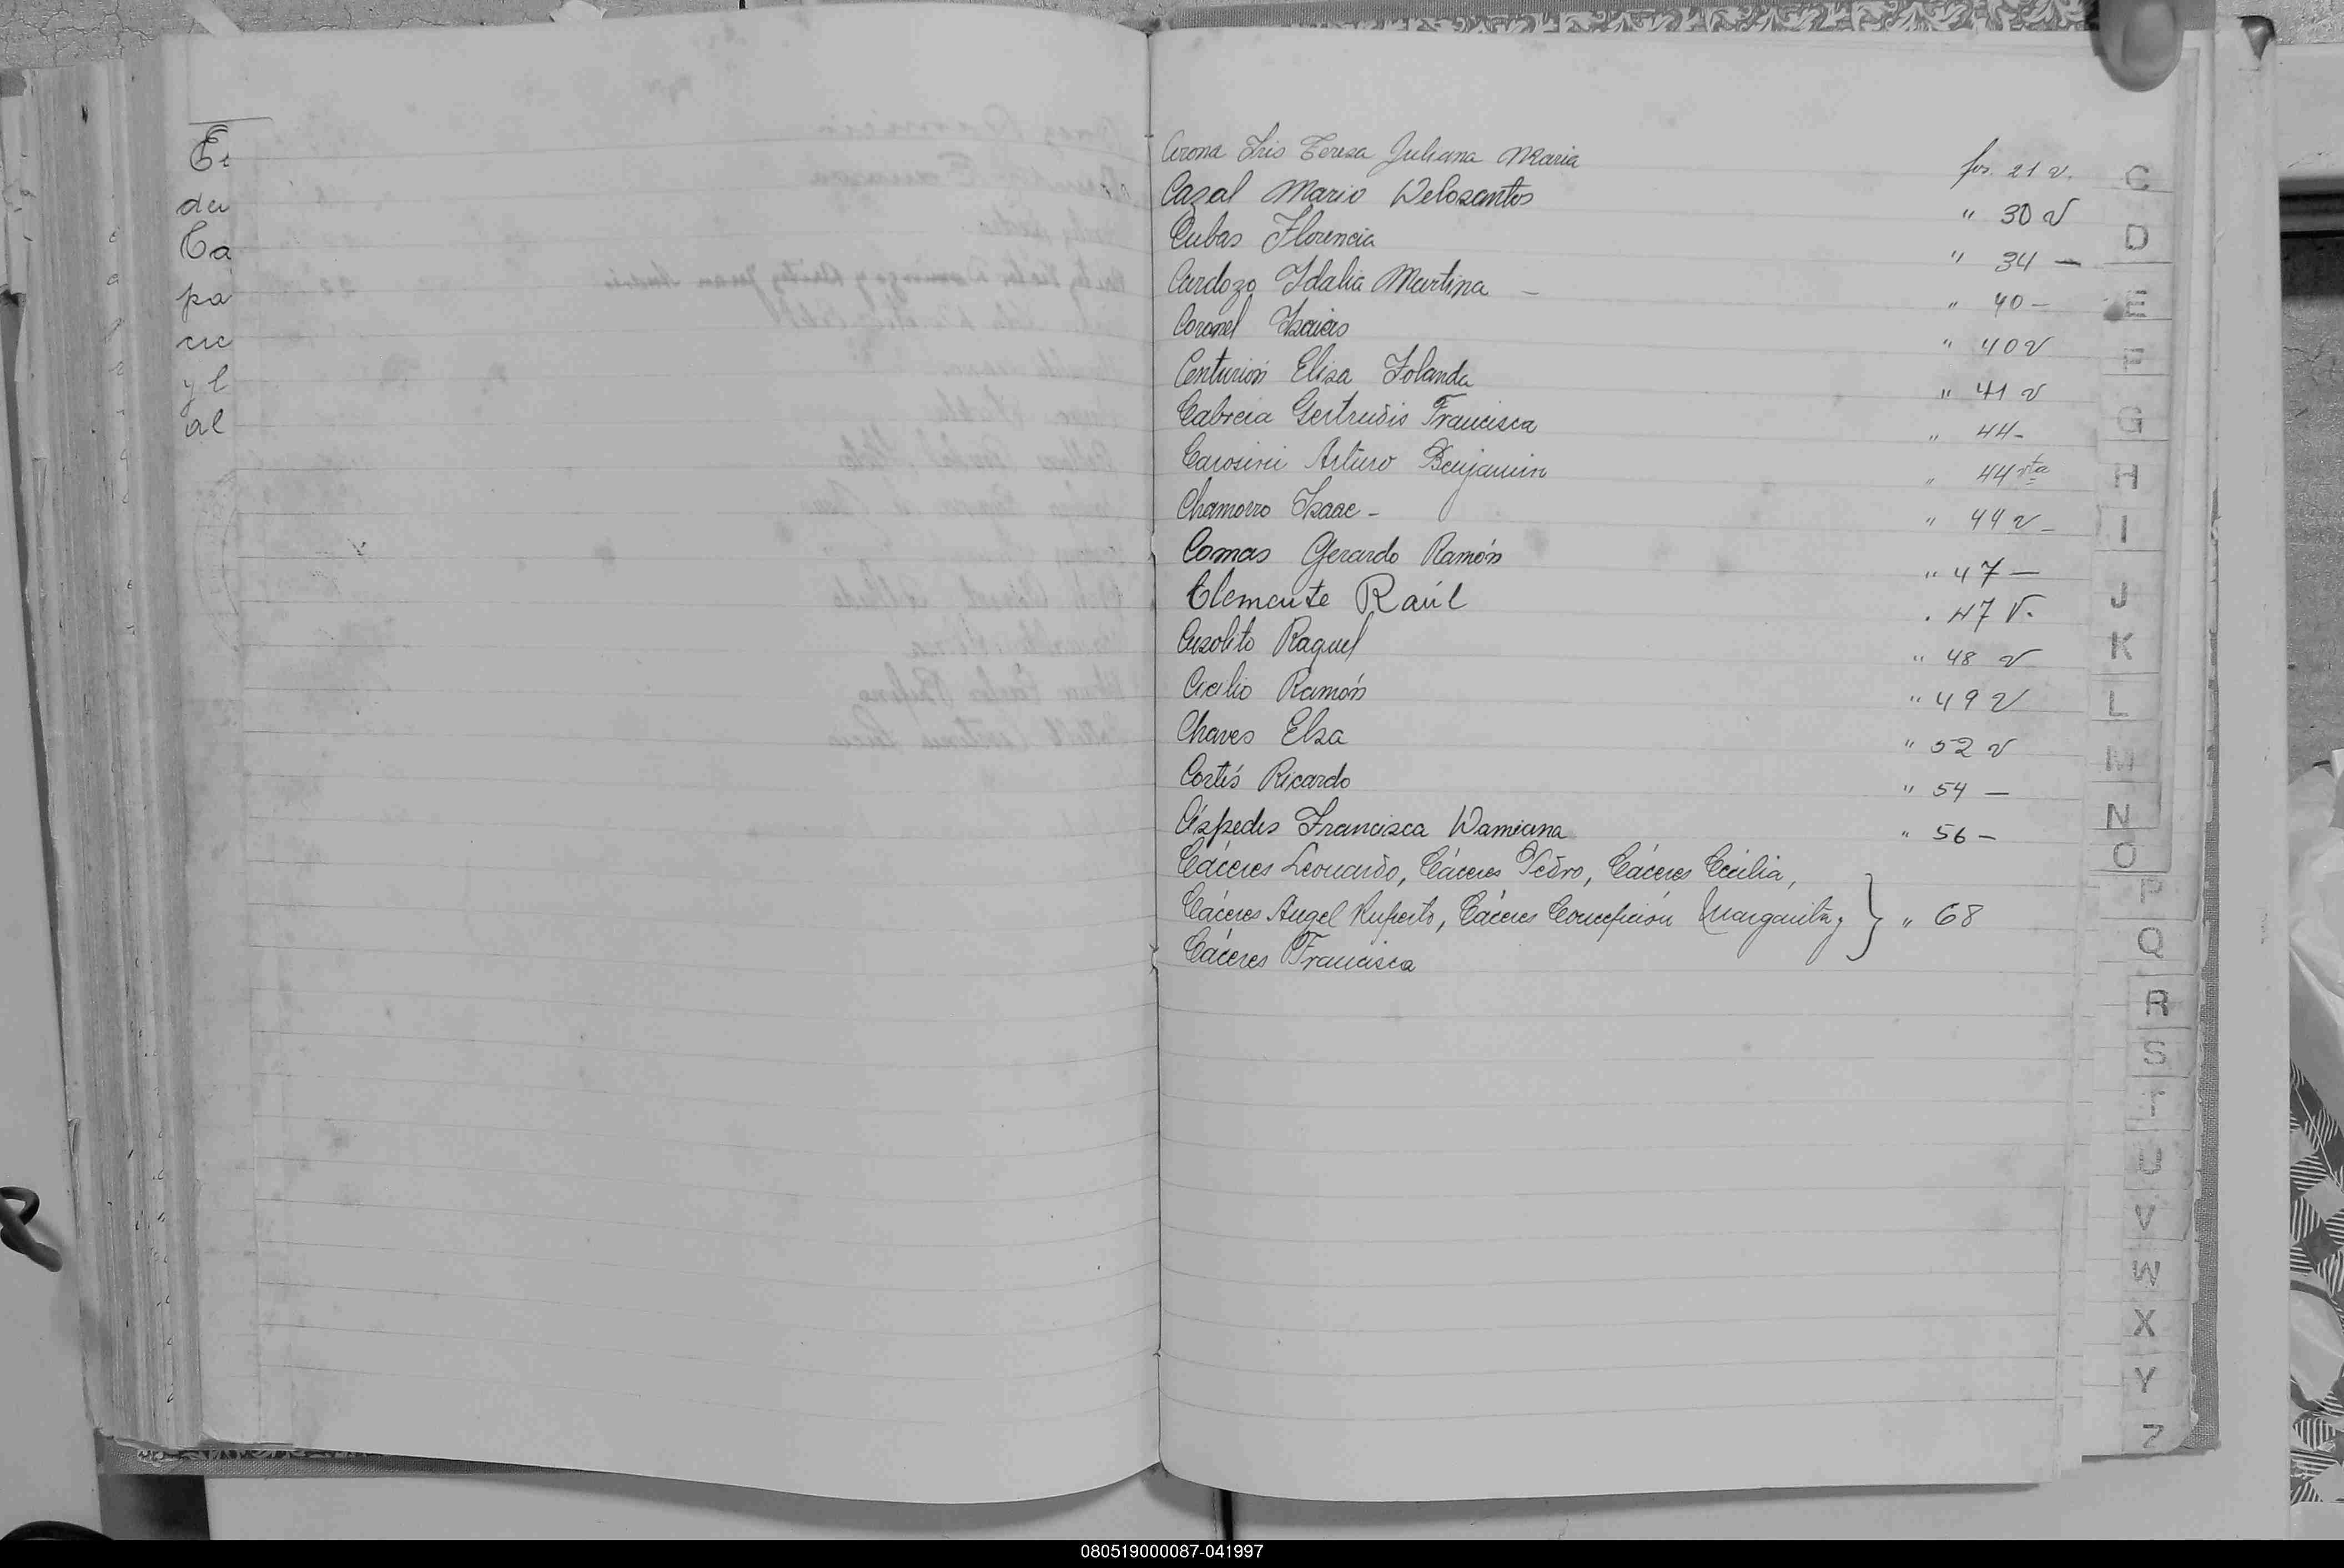 Ee
du
Ca
pa
cre
y l
al
Cirona Iris Teresa Juliana Maria fos. 21 v.
Cazal Mario Delosantos " 30 v
Cubas Florencia " 34 —
Cardozo Idalia Martina — " 40 —
Coronel Isaias " 40 v
Centurión Elisa Iolanda " 41 v
Cabrera Gertrudis Francisca " 44 -
Carosini Arturo Benjamin " 44 vta
Chamorro Isaac - " 44 v -
Comas Gerardo Ramón " 47 —
Clemente Raúl . 47 V.
Cusolito Raquel " 48 v
Cicilio Ramón " 49 v
Chaves Elsa " 52 v
Cortés Ricardo " 54 —
Céspedes Francisca Damiana " 56 -
Cáceres Leonardo, Cáceres Pedro, Cáceres Cecilia,
Cáceres Angel Ruperto, Cáceres Concepción Margarita y } " 68
Cáceres Francisca
C
D
E
F
G
H
I
J
K
L
M
N
O
P
Q
R
S
T
U
V
W
X
Y
Z
080519000087-041997